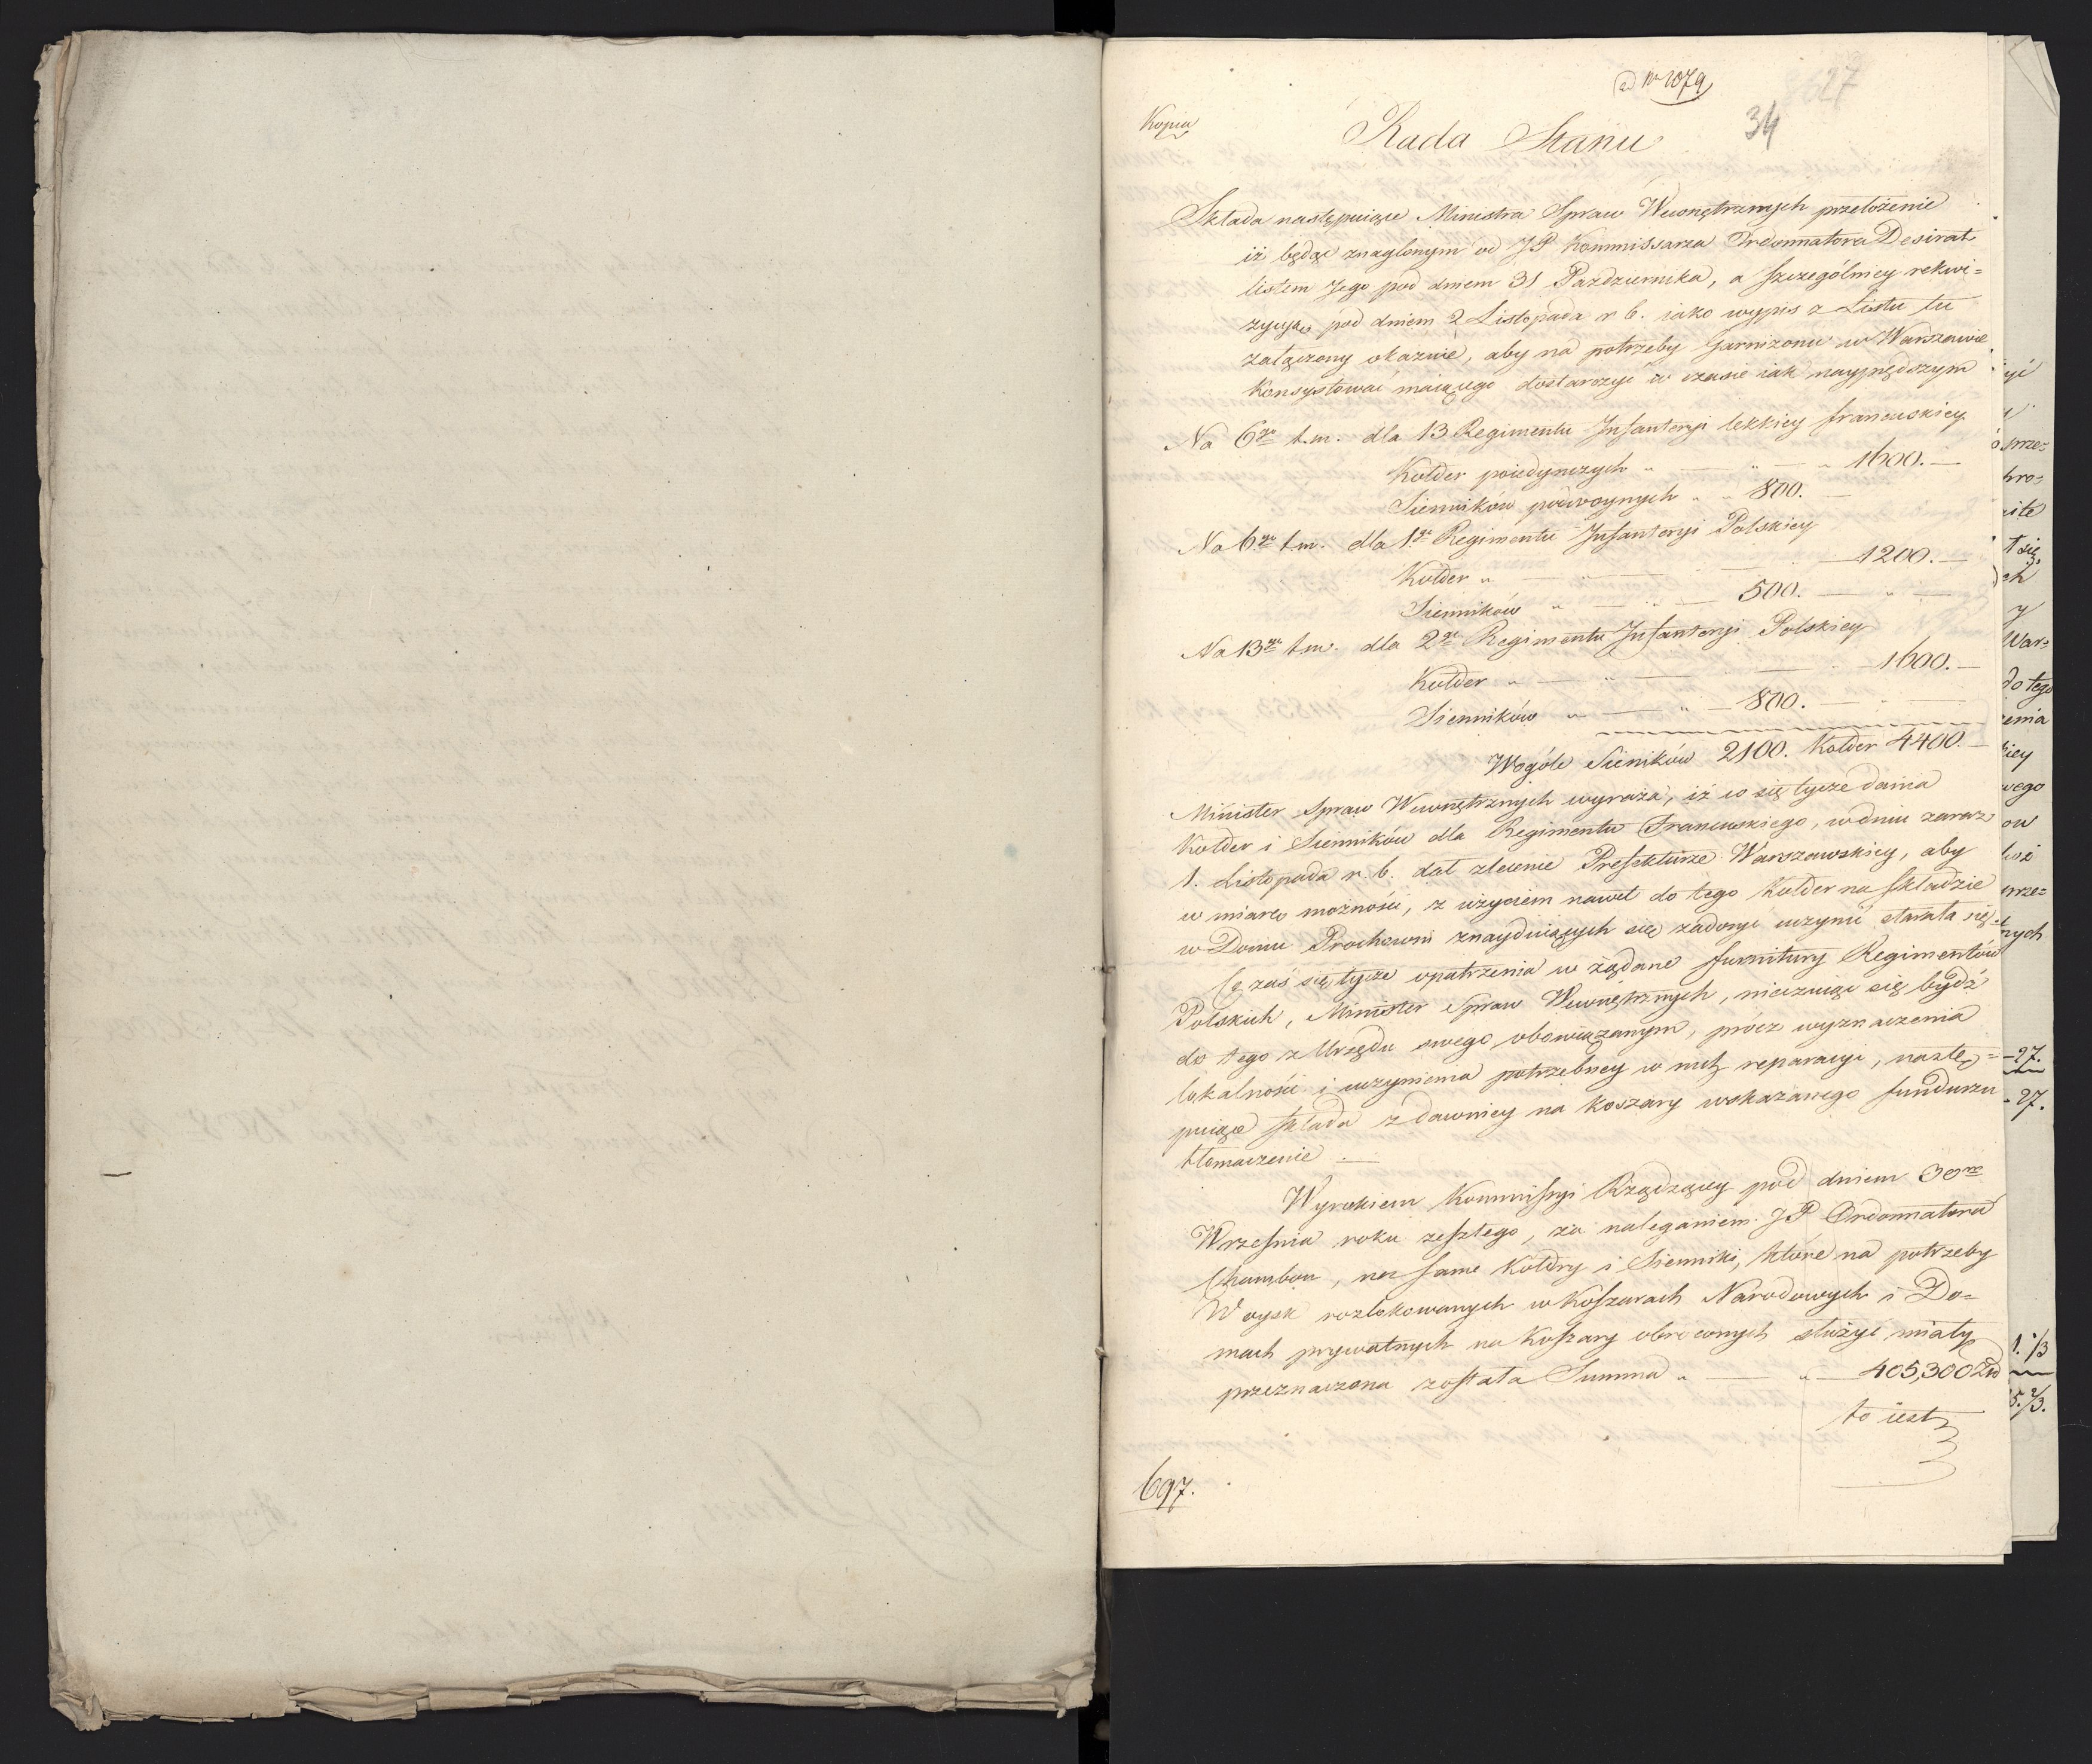 ad Nro 1079
34
Kopia
Rada Stanu
Składa następuiące Ministra Spraw Wewnętrznych przełożenie
iż będąc znaglonym od JP Kommissarza Ordonnatora Desirat
listem Jego pod dniem 31 Pazdziernika, a szczególniey rekwi=
zycyą pod dniem 2 Listopada r b. iako wypis z Listu tu
załączony okazuie, aby na potrzeby Garnizonu w Warszawie
Konsystować maiącego dostarczyć w czasie iak nayprędszym
Na 6go t.m. dla 13 Regimentu Infanteryi lekkiey francuskiey
Kołder poiedynczych " — " — " 1600. —
Sienników podwoynych " " 800. —
Na 6go t.m. dla 1go Regimentu Infanteryi Polskiey
Kołder " — " — 1200. —
Sienników " — " — 500. — " —
Na 13go t.m. dla 2go Regimentu Infanteryi Polskiey
Kołder " — " — 1600. —
Sienników " — " — 800. — " —
Wogóle Sieników 2100. Kołder 4400. —
Minister Spraw Wewnętrznych wyraża, iż co się tycze dania
Kołder i Sienników dla Regimentu Francuskiego, w dniu zaraz
1. Listopada r. b. dał zlecenie Prefekturze Warszawskiey, aby
w miarę możności, z użyciem nawet do tego Kołder na składzie
w Domu Prochowni znayduiących się zadosyć uczynić starała się.
Co zaś się tycze opatrzenia w żądane furnitury Regimentów
Polskich, Minister Spraw Wewnętrznych, nieczuiąc się bydź
do tego z Urzędu swego obowiązanym, prócz wyznaczenia
lokalności i uczynienia potrzebney w nich reparacyi, nastę=
puiące składa z dawniey na Koszary wskazanego funduszu
tłomaczenie. —
Wyrokiem Kommissyi Rządzącey pod dniem 30ym
Września roku zeszłego, za naleganiem JP Ordonnatora
Chambon, na same Kołdry i Sienniki, które na potrzeby
Woysk rozlokowanych w Koszarach Narodowych i Do=
mach prywatnych na Koszary obróconych służyć miały
przeznaczona została Summa " — " — 405,300 Złp
to iest
697.